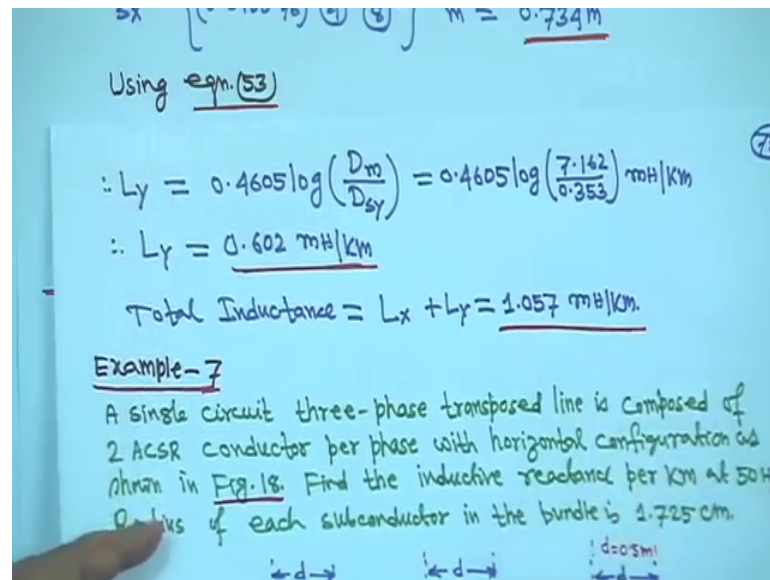 m = 0.734m
Using eqn.(53)
∴ Ly = 0.4605log(Dm/Dsy) = 0.4605log(7.162/0.353) mH/KM
∴ Ly = 0.602 mH/KM
Total Inductance = Lx + Ly = 1.057 mH/KM.
Example-7
A single circuit three-phase transposed line is composed of
2 ACSR conductor per phase with horizontal configuration as
shown in Fig.18. Find the inductive reactance per KM at 50H
Radius of each subconductor in the bundle is 1.725 cm.
d=0.5m
d d d